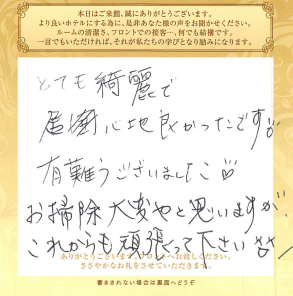 本日はご来館、誠にありがとうございます。
より良いホテルにする為に、是非あなた様の声をお聞かせください。
ルームの清潔さ、フロントでの接客…、何でも結構です。
一言でもいただければ、それが私たちの学びとなり励みになります。
とても綺麗で
居心地良かったです
有難うございました♡
お掃除大変やと思いますが、
これからも頑張って下さい
ありがとうございます。フロントへお渡しください。
ささやかなお礼をさせていただきます。
書ききれない場合は裏面へどうぞ